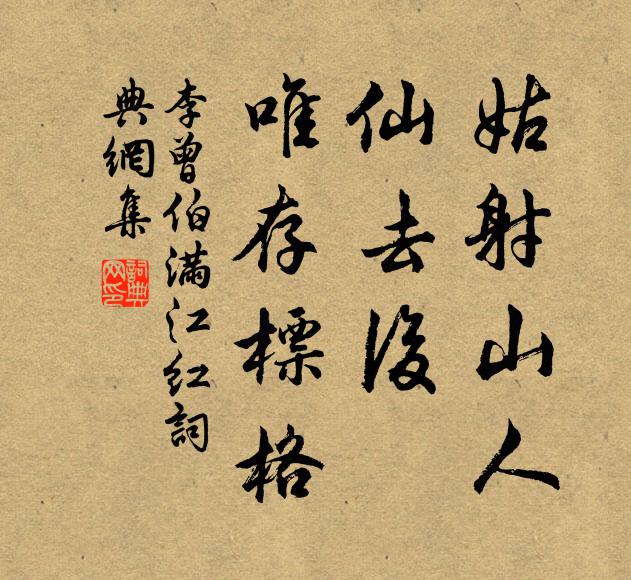 姑射山人
仙去後
唯存標格
李曾伯滿江紅詞
典網集
詞典
网印